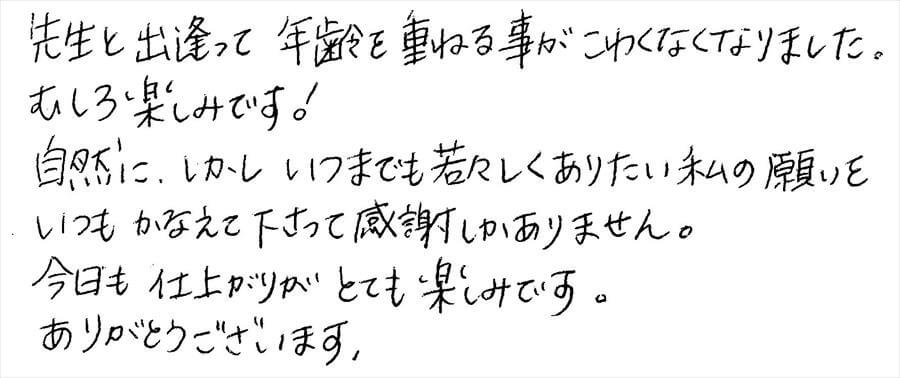 先生と出逢って年齢を重ねる事がこわくなくなりました。
むしろ楽しみです!
自然に、しかしいつまでも若々しくありたい私の願いを
いつもかなえて下さって感謝しかありません。
今日も仕上がりがとても楽しみです。
ありがとうございます、